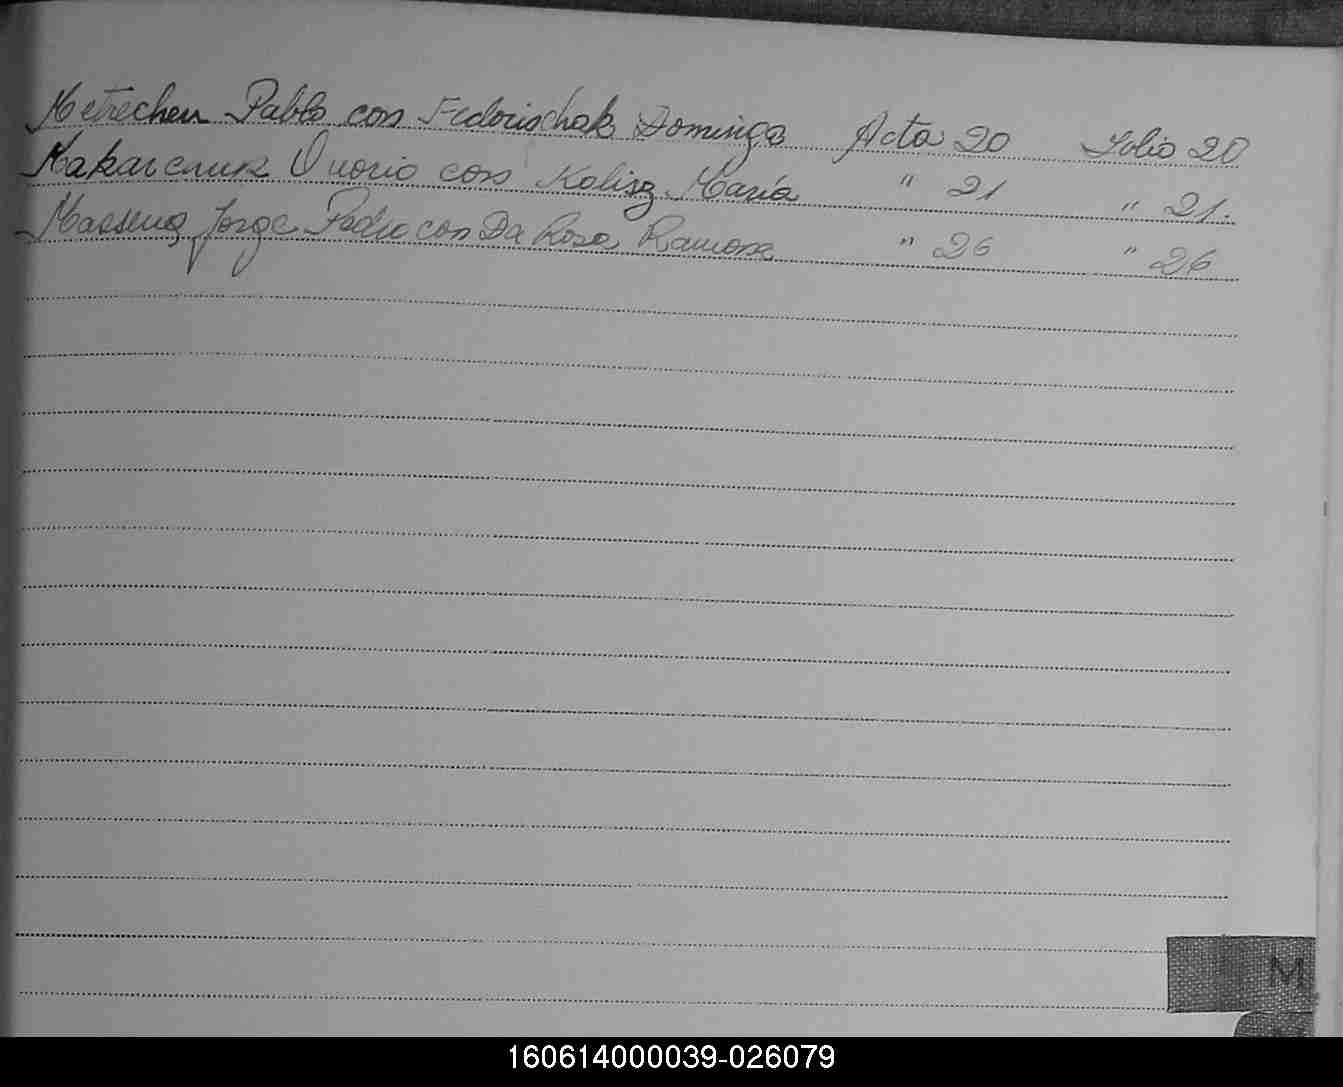 Metrechen Pablo con Fedorischak Dominga Acta 20 Folio 20
Makarczuk Onorio con Kolisz Maria " 21 " 21.
Massena Jorge Pedro con Da Rosa Ramona " 26 " 26
M
160614000039-026079